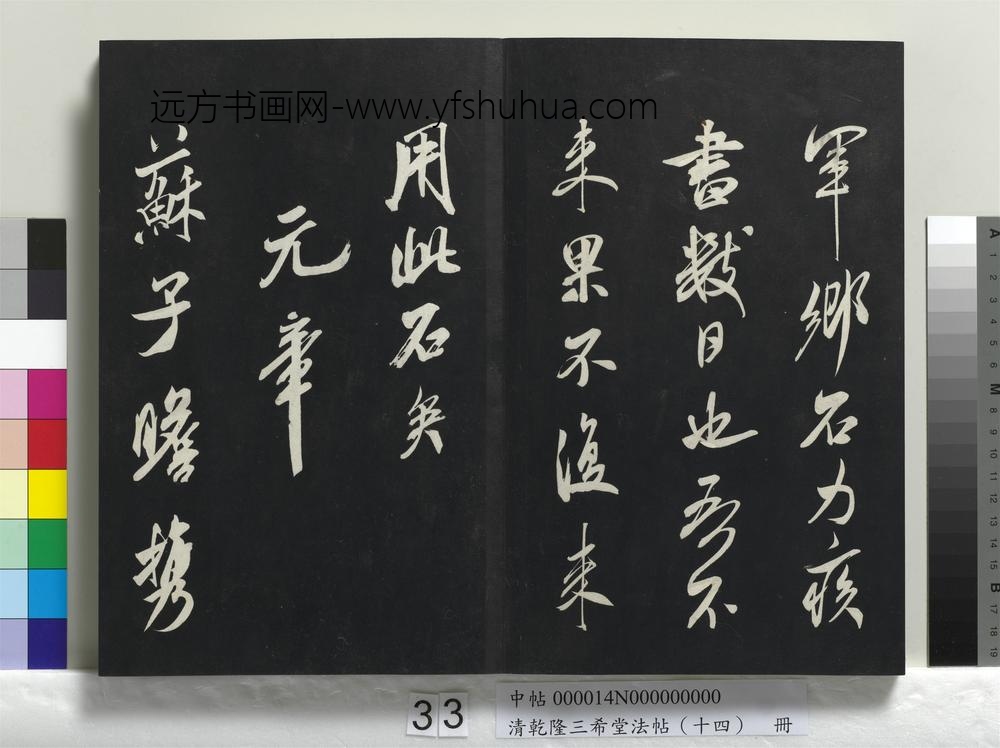 远方书画网-www.yfshuhua.com
軍鄉石力疾
書數日也吾不
来果不復来
用此石矣
元章
蘇子瞻携
33
中帖 000014N000000000
清乾隆三希堂法帖（十四） 冊
A 1 2 3 4 5 6 M 8 9 10 11 12 13 14 15 B 17 18 19